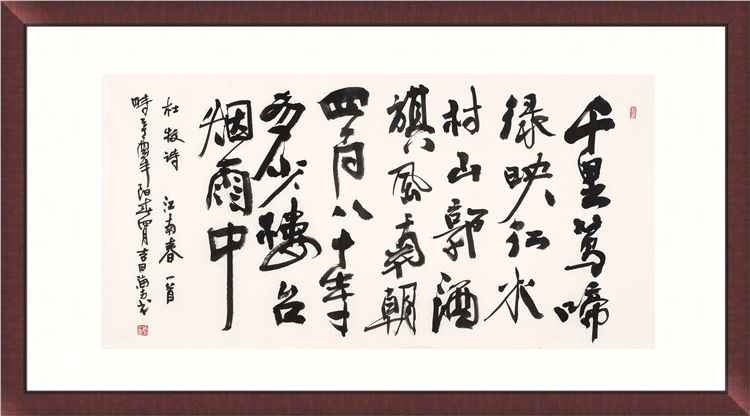 千里莺啼
绿映红水
村山郭酒
旗风南朝
四百八十寺
多少楼台
烟雨中
杜牧诗 江南春 一首
时辛酉年阳春四月吉日